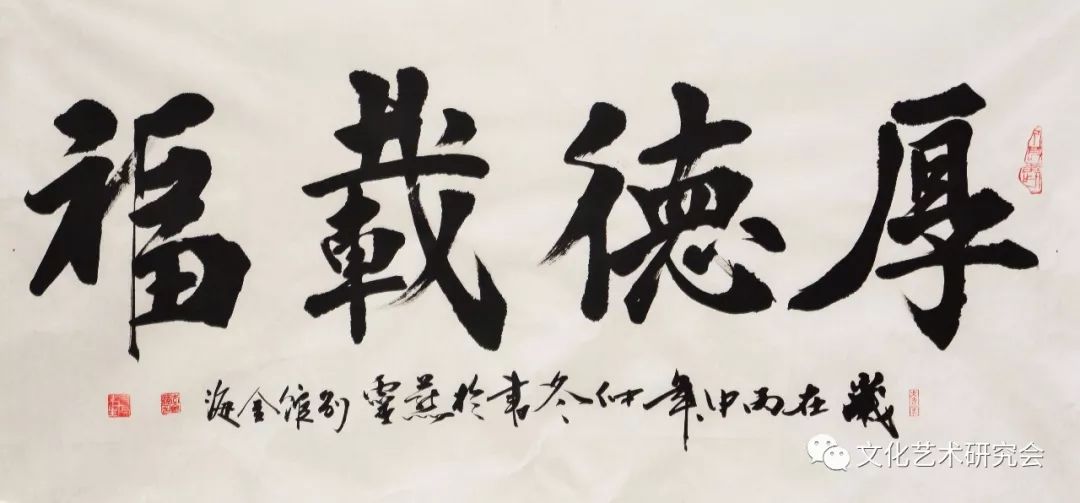 厚德載福
歲在丙申年仲冬書於燕靈別館金海
文化艺术研究会